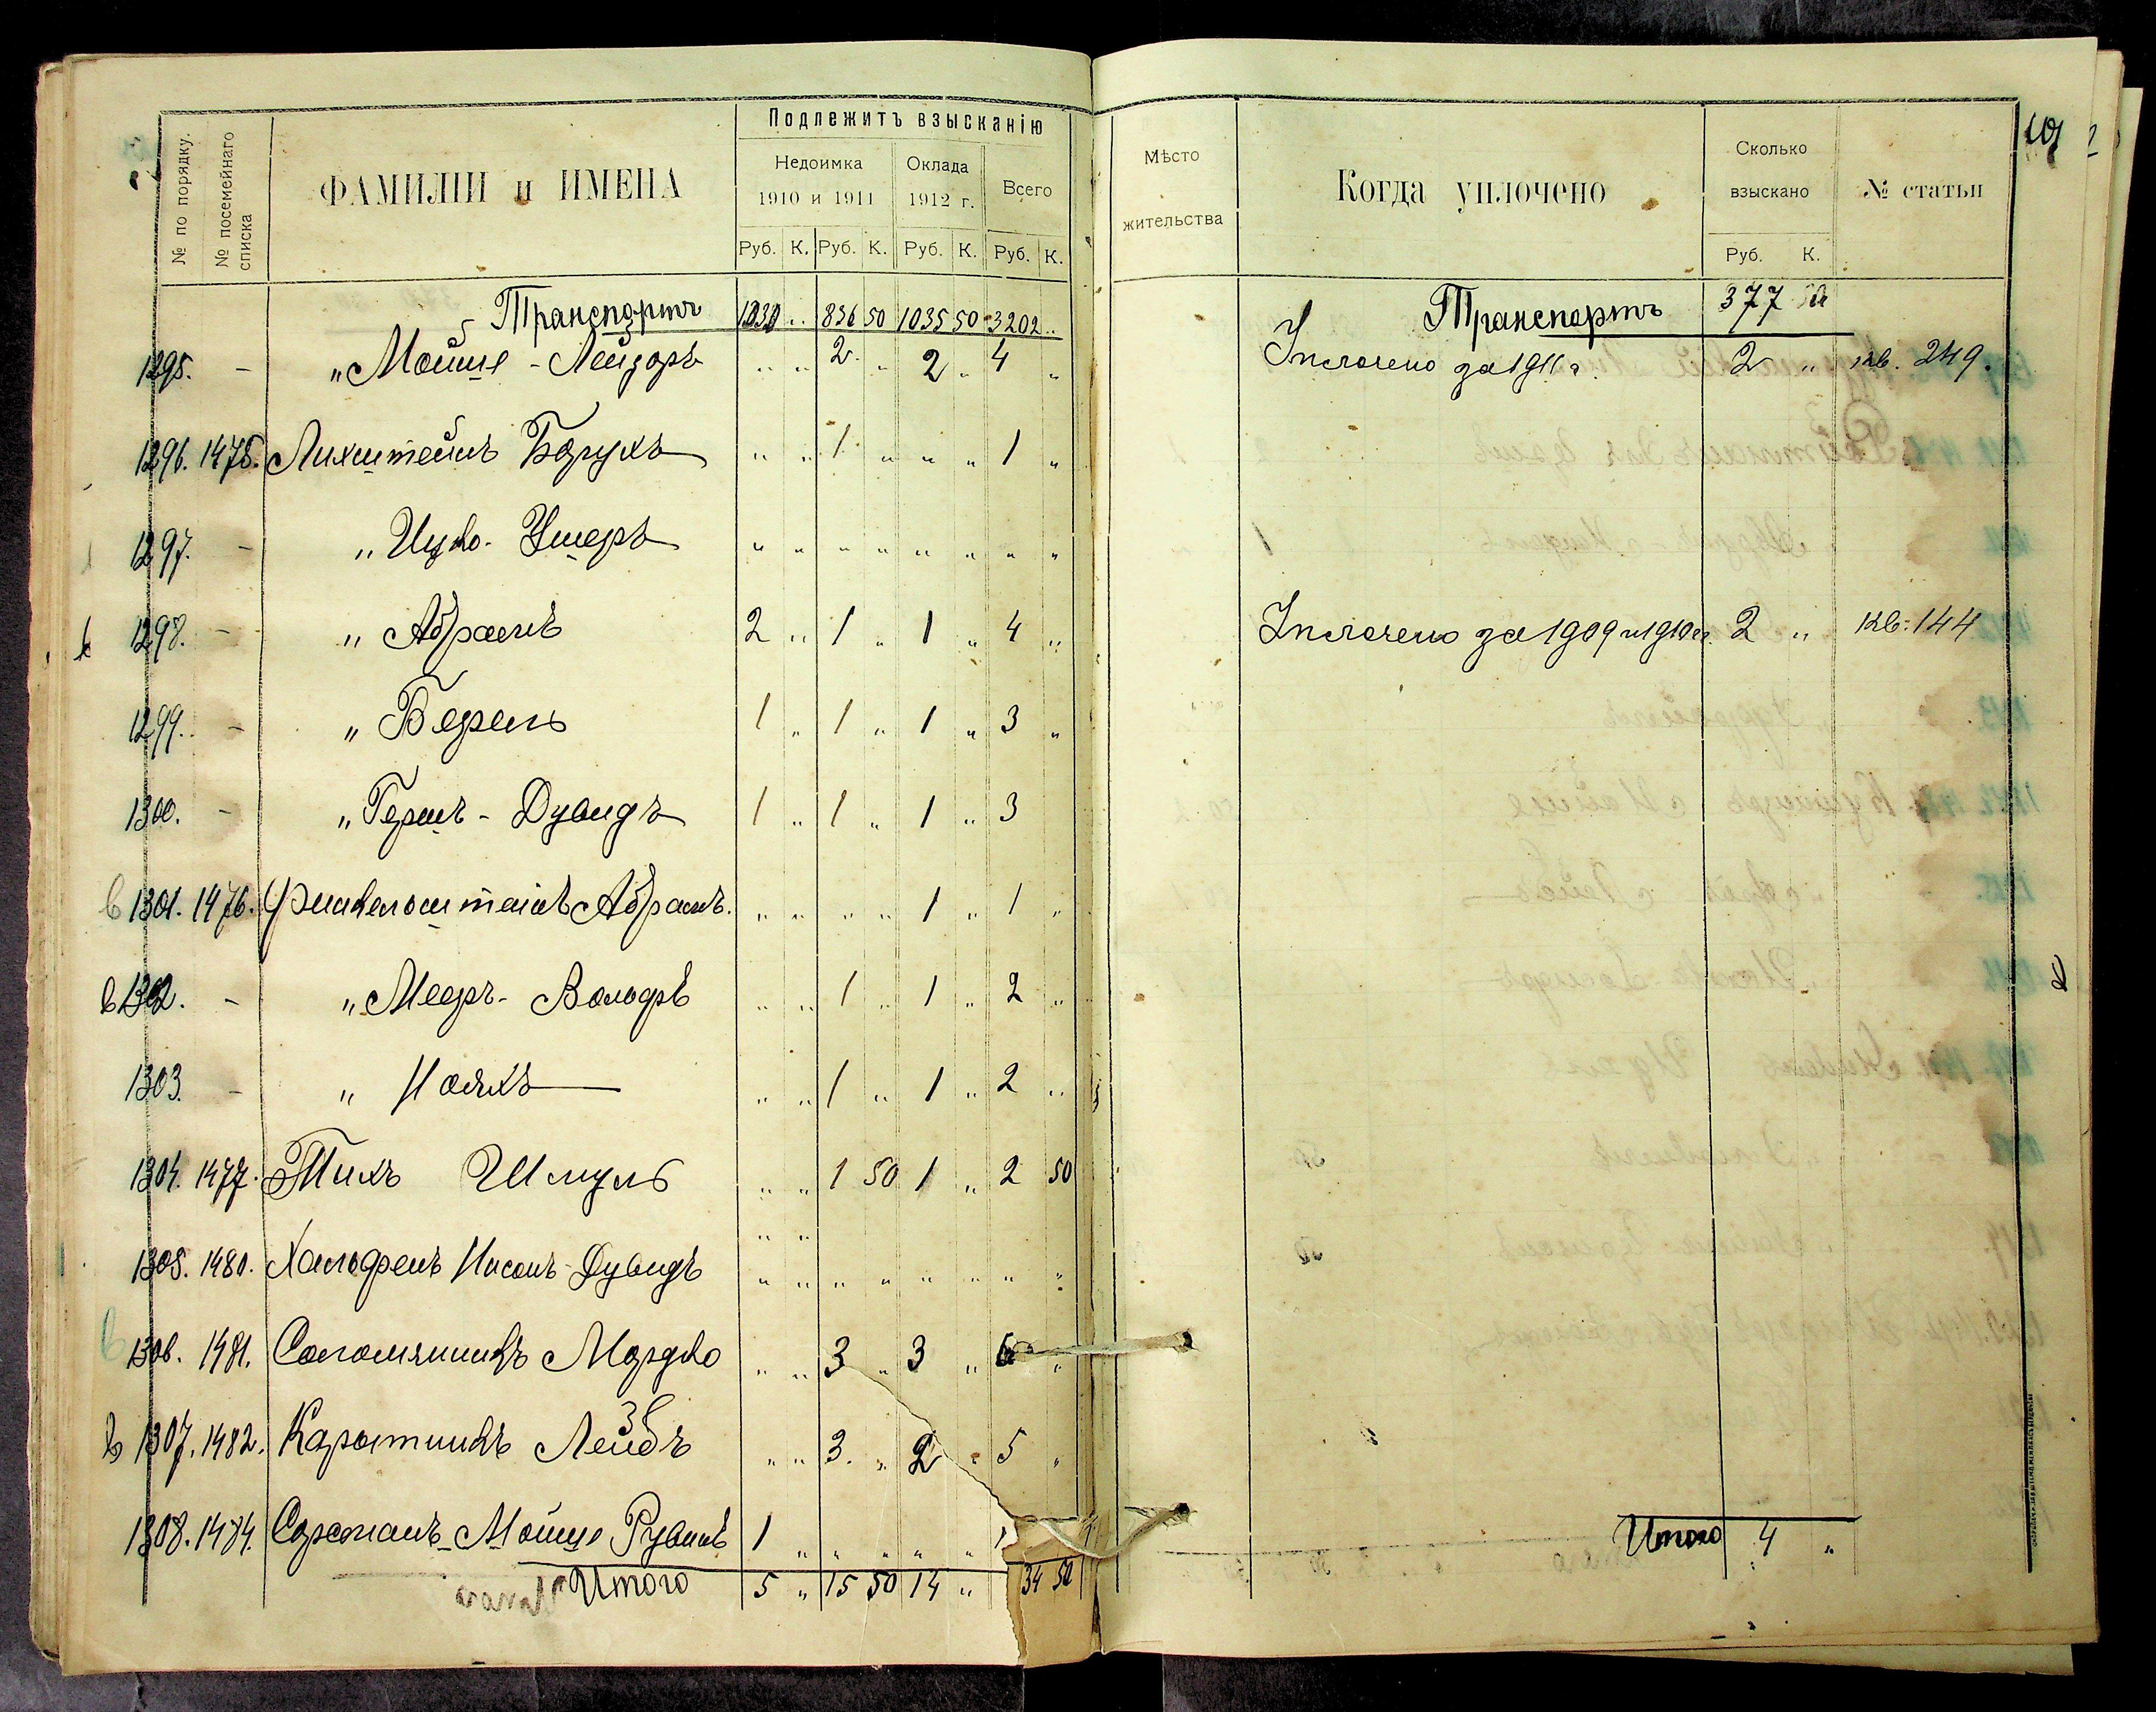 № по порядку.
№ посемейнаго списка
ФАМИЛІИ и ИМЕНА
Подлежитъ взысканію
Недоимка 1910 и 1911
Оклада 1912 г.
Всего
Руб. К. Руб. К. Руб. К. Руб. К.
Мѣсто жительства
Когда уплочено
Сколько взыскано
Руб. К.
№ статьи
Транспортъ 1330 „ 836 50 1035 50 3202 „
1295. - „ Мойше - Лейзоръ „ „ 2 „ 2 „ 4 „
1296. 1475. Лихштейнъ Борухъ „ „ 1 „ „ „ 1 „
1297. - „ Ицко - Ушеръ „ „ „ „ „ „ „ „
1298. - „ Абрамъ 2 „ 1 „ 1 „ 4 „
1299. - „ Берель 1 „ 1 „ 1 „ 3 „
1300. - „ Гершъ - Дувидъ 1 „ 1 „ 1 „ 3
в 1301. 1476. Финкельштейнъ Абрамъ. „ „ „ „ 1 „ 1 „
в 1302. - „ Мееръ - Вольфъ „ „ 1 „ 1 „ 2 „
1303. - „ Нояхъ „ „ 1 „ 1 „ 2 „
1304. 1477. Тихъ Шмуль „ „ 1 50 1 „ 2 50
1305. 1480. Хальфенъ Нисонъ - Дувидъ „ „ „ „ „ „ „ „
в 1306. 1481. Соломянникъ Мордко „ „ 3 „ 3 „ 6 „
в 1307. 1482. Коростникъ Лейбъ „ „ 3 „ 2 „ 5 „
1308. 1484. Мойше Рувинъ 1 „ „ „ „ „ 1
Итого 5 „ 15 50 14 „ 34 50
Транспортъ 377 50
Уплочено за 1911 г. 2 „ кв. 249.
Уплочено за 1909 и 1910 гг. 2 „ кв. 144
Итого 4 „